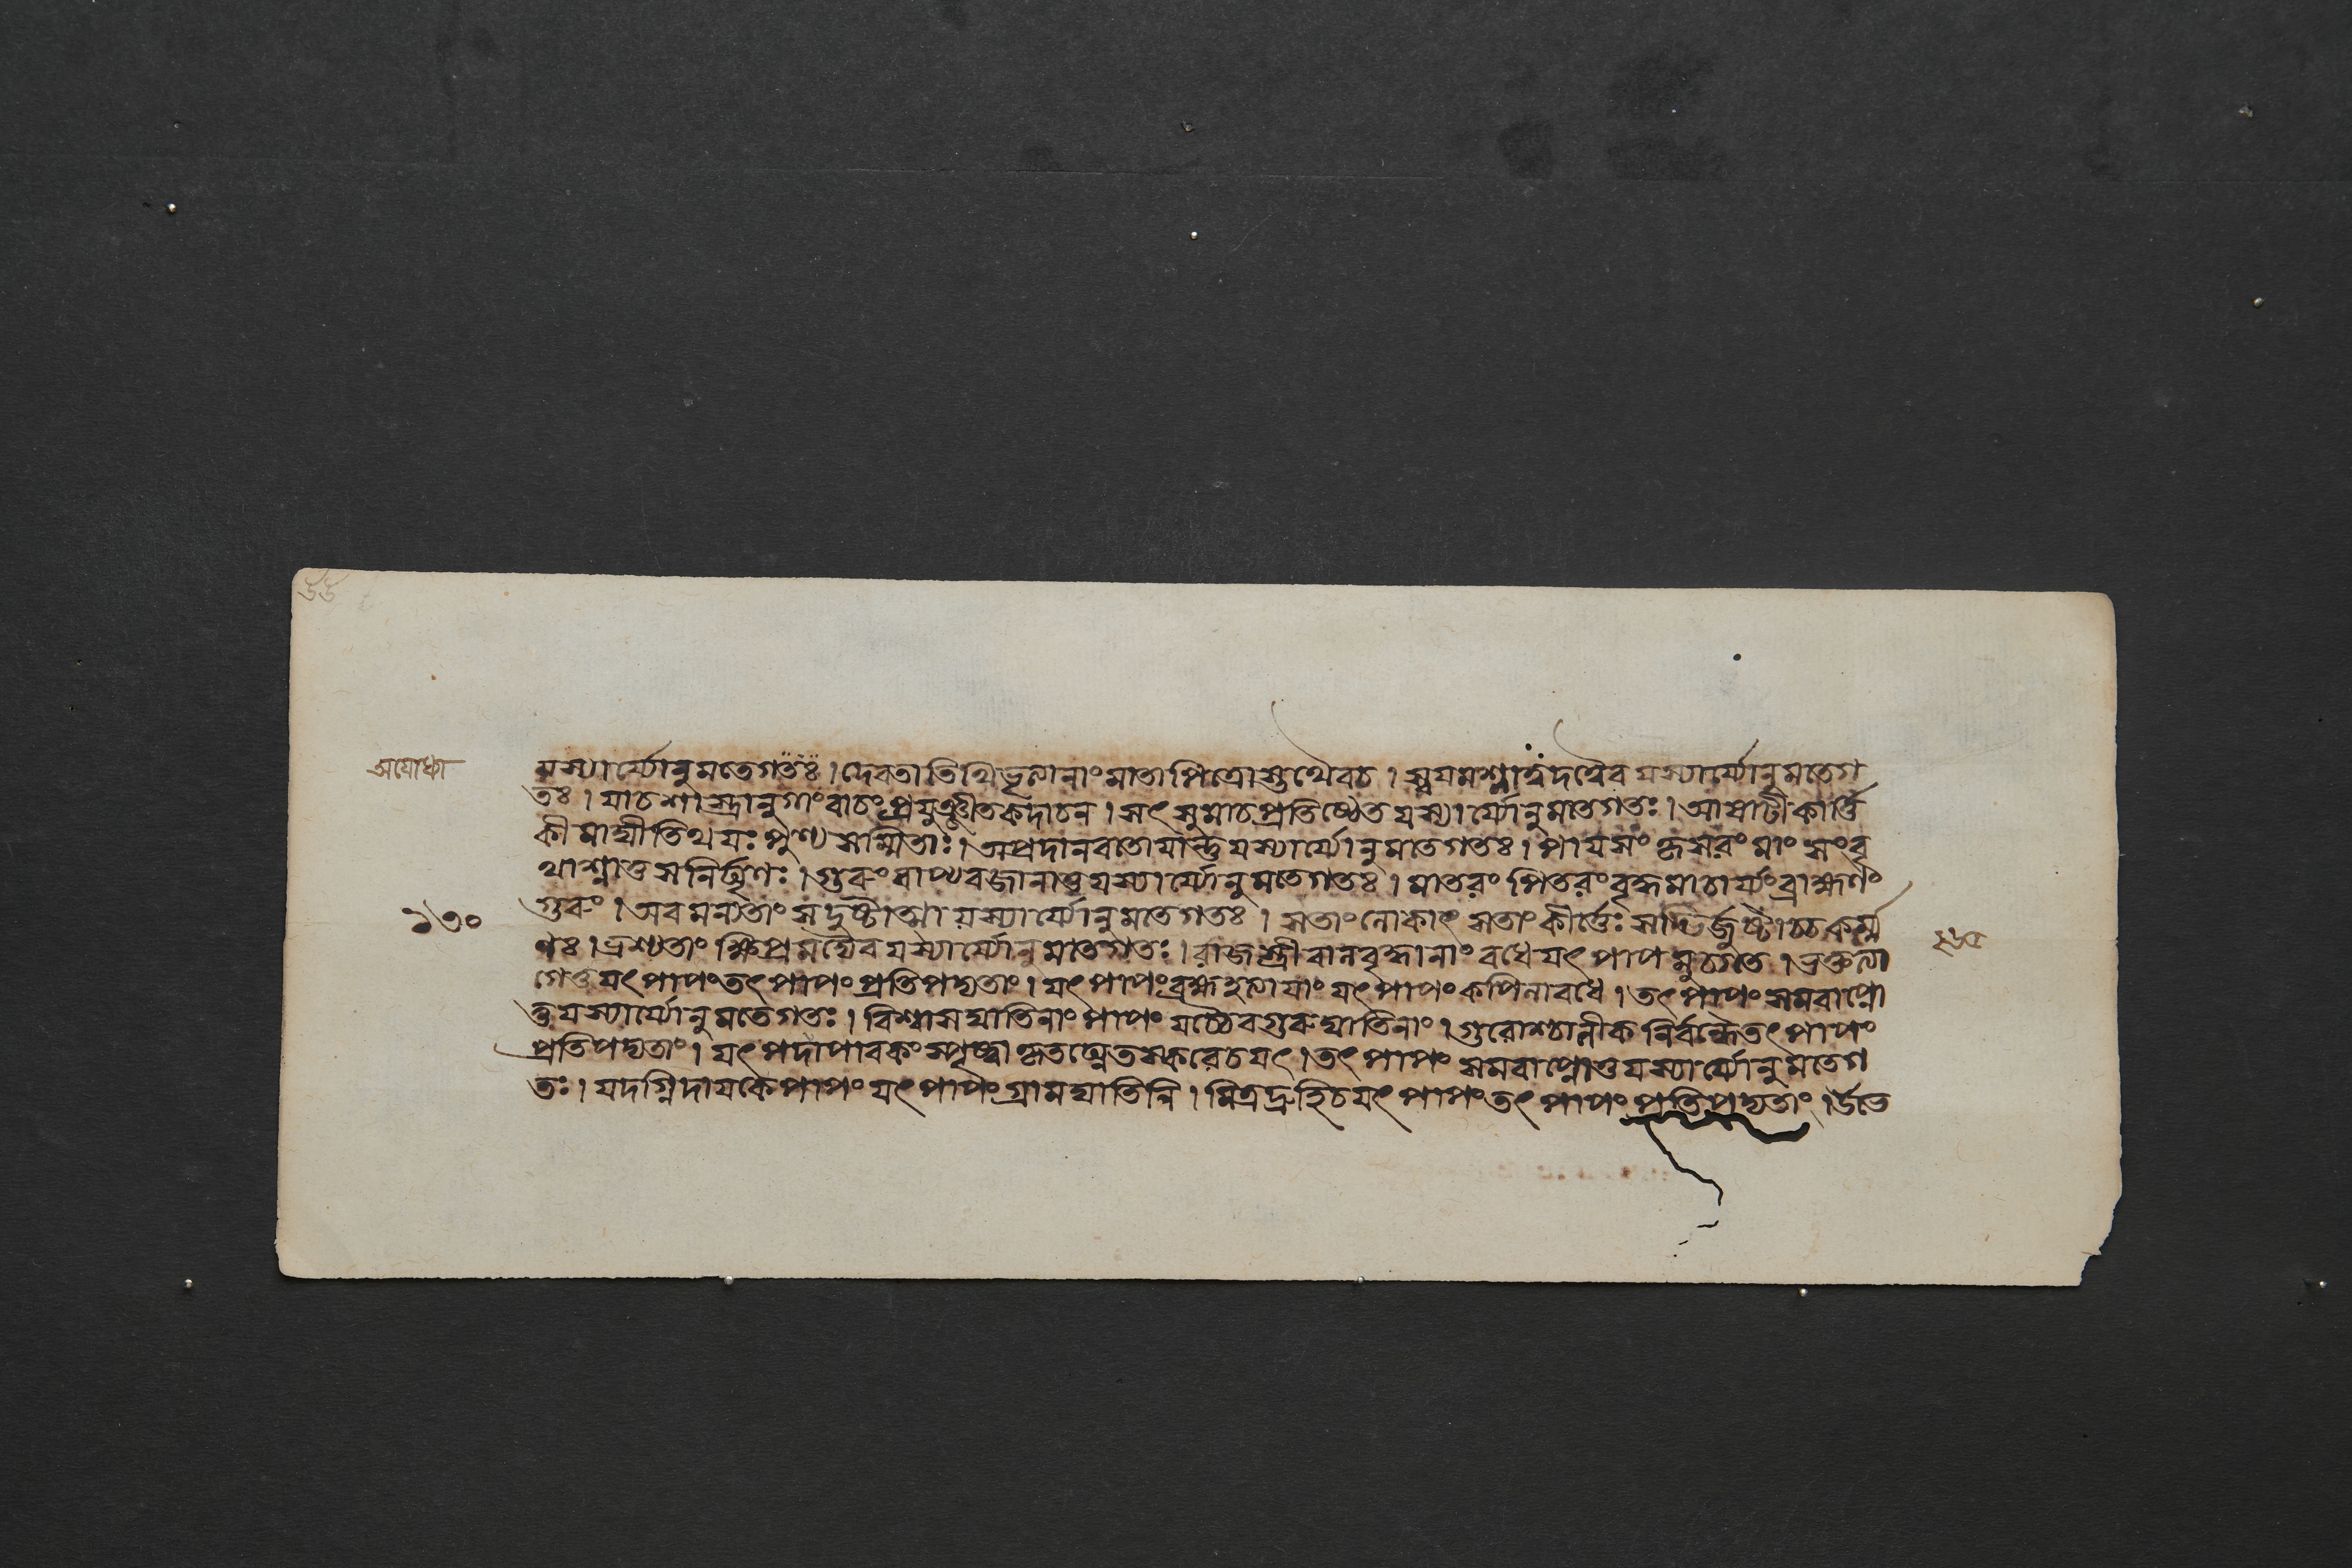 ৬৬
অযোধ্যা
যস্যার্য্যোনুমতেগতঃ। দেবতাতিথিভৃত্যানাং মাতাপিত্রোস্তথৈবচ। স্বয়মশ্নাত্বদত্বৈব যস্যার্য্যোনুমতেগ
তঃ। মাচশাস্ত্রানুগাংবাচং প্রযুঞ্জীতকদাচন। সৎসুমাচপ্রতিষ্ঠেত যস্যার্য্যোনুমতেগতঃ। আষাঢীকার্ত্তি
কীমাঘীতিথযঃ পুণ্যসম্মিতাঃ। অপ্রদানবতোযান্তু যস্যার্য্যোনুমতেগতঃ। পাযসং কৃসরং মাংসংবৃ
থাশ্নাতুসনির্ঘৃণঃ। গুরুংবাপ্যবজানাতু যস্যার্য্যোনুমতেগতঃ। মাতরং পিতরং বৃদ্ধমাচার্য্যংব্রাহ্মণং
গুরুং। অবমন্যতাং সদুষ্টাত্মা যস্যার্য্যোনুমতেগতঃ। সতাংলোকাৎ সতাংকীর্ত্তেঃ সদ্ভির্জুষ্টাচ্চকর্ম্ম
১৩০
ণঃ। ভ্রশ্যতাং ক্ষিপ্রমদ্যৈব যস্যার্য্যোনুমতেগতঃ। রাজস্ত্রীবালবৃদ্ধানাং বধেযৎ পাপমুচ্যতে। ভৃত্যত্যা
গেতু যৎপাপংতৎপাপং প্রতিপদ্যতাং। যৎপাপংব্রহ্মহত্যাযাং যৎপাপং কপিলাবধে। তৎপাপং সমবাপ্নো
তু যস্যার্য্যোনুমতেগতঃ। বিশ্বাসঘাতিনাংপাপং যচ্চৈবগুরুঘাতিনাং। গুরোশ্চালীকনির্বন্ধেতৎপাপং
প্রতিপদ্যতাং। যৎপদাপাবকংস্পৃষ্ট্বা কৃতঘ্নেতস্করেচযৎ। তৎপাপং সমবাপ্নোতু যস্যার্য্যোনুমতেগ
তঃ। যদগ্নিদাযকেপাপং যৎপাপংগ্রামঘাতিনি। মিত্রদ্রুহিচযৎপাপংতৎপাপং প্রতিপদ্যতাং। উভে